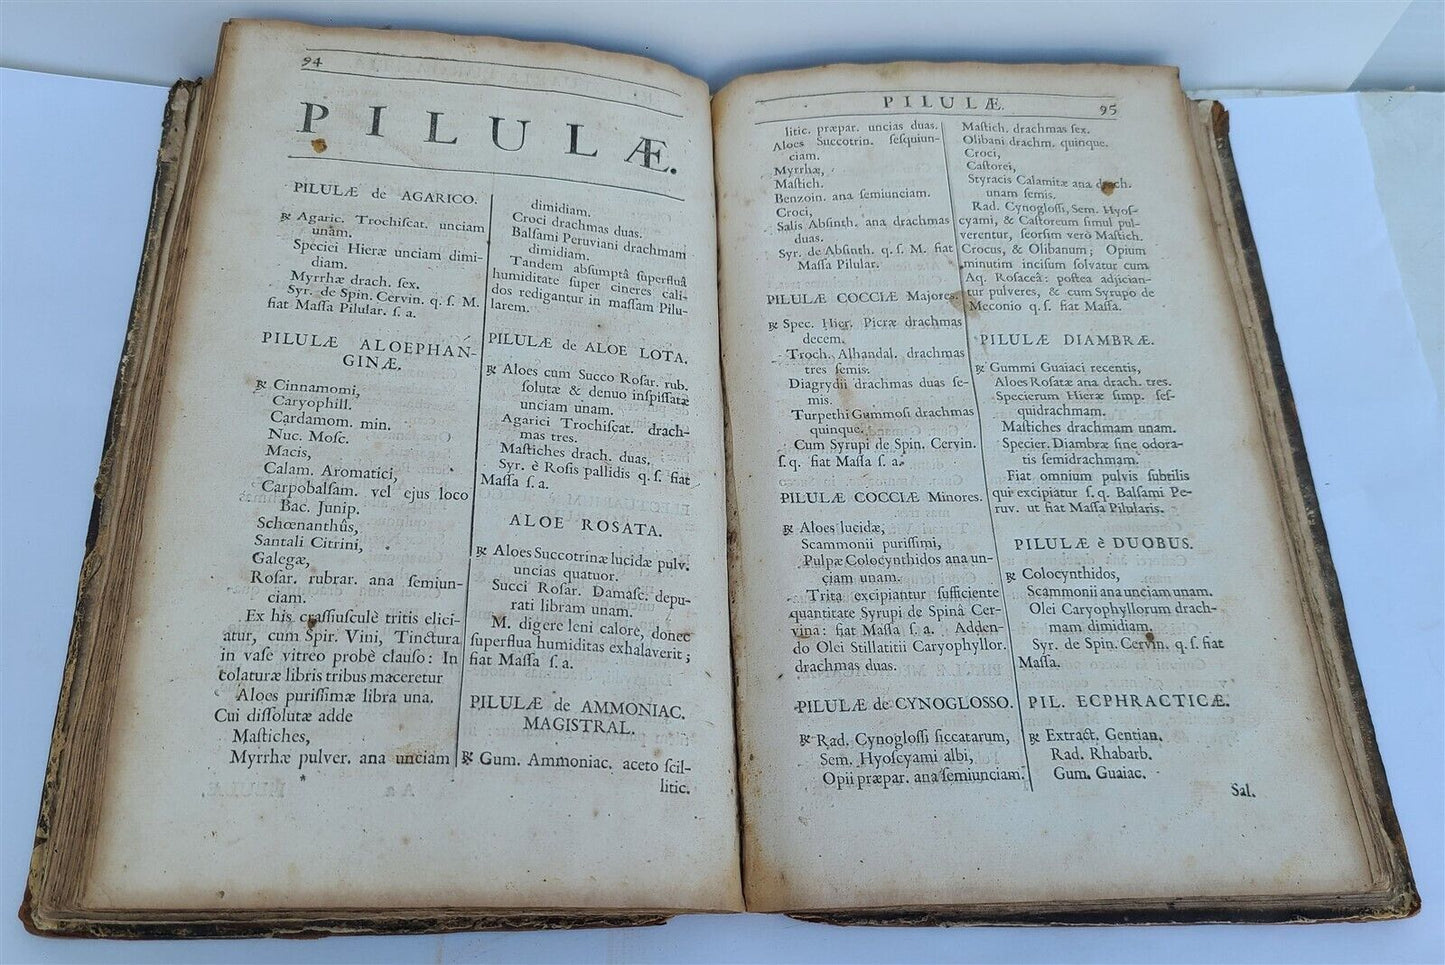 94
PILULÆ.
PILULÆ de AGARICO.
℞ Agaric. Trochiſcat. unciam
unam.
Speciei Hieræ unciam dimi-
diam.
Myrrhæ drach. ſex.
Syr. de Spin. Cervin. q. ſ. M.
fiat Maſſa Pilular. ſ. a.
PILULÆ ALOEPHAN-
GINÆ.
℞ Cinnamomi,
Caryophill.
Cardamom. min.
Nuc. Moſc.
Macis,
Calam. Aromatici,
Carpobalſam. vel ejus loco
Bac. Junip.
Schœnanthûs,
Santali Citrini,
Galegæ,
Roſar. rubrar. ana ſemiun-
ciam.
Ex his craſſiuſculè tritis elici-
atur, cum Spir. Vini, Tinctura
in vaſe vitreo probè clauſo: In
colaturæ libris tribus maceretur
Aloes puriſſimæ libra una.
Cui diſſolutæ adde
Maſtiches,
Myrrhæ pulver. ana unciam
dimidiam.
Croci drachmas duas.
Balſami Peruviani drachmam
dimidiam.
Tandem abſumptâ ſuperfluâ
humiditate ſuper cineres cali-
dos redigantur in maſſam Pilu-
larem.
PILULÆ de ALOE LOTA.
℞ Aloes cum Succo Roſar. rub.
ſolutæ & denuo inſpiſſatæ
unciam unam.
Agarici Trochiſcat. drach-
mas tres.
Maſtiches drach. duas.
Syr. è Roſis pallidis q. ſ. fiat
Maſſa ſ. a.
ALOE ROSATA.
℞ Aloes Succotrinæ lucidæ pulv.
uncias quatuor.
Succi Roſar. Damaſc. depu-
rati libram unam.
M. digere leni calore, donec
ſuperflua humiditas exhalaverit;
fiat Maſſa ſ. a.
PILULÆ de AMMONIAC.
MAGISTRAL.
℞ Gum. Ammoniac. aceto ſcil-
litic.
PILULÆ. 95
litic. præpar. uncias duas.
Aloes Succotrin. ſeſquiun-
ciam.
Myrrhæ,
Maſtich.
Benzoin. ana ſemiunciam.
Croci,
Salis Abſinth. ana drachmas
duas.
Syr. de Abſinth. q. ſ. M. fiat
Maſſa Pilular.
PILULÆ COCCIÆ Majores.
℞ Spec. Hier. Picræ drachmas
decem.
Troch. Alhandal. drachmas
tres ſemis.
Diagrydii drachmas duas ſe-
mis.
Turpethi Gummoſi drachmas
quinque.
Cum Syrupi de Spin. Cervin.
ſ. q. fiat Maſſa ſ. a.
PILULÆ COCCIÆ Minores.
℞ Aloes lucidæ,
Scammonii puriſſimi,
Pulpæ Colocynthidos ana un-
ciam unam.
Trita excipiantur ſufficiente
quantitate Syrupi de Spinâ Cer-
vina: fiat Maſſa ſ. a. Adden-
do Olei Stillatitii Caryophyllor.
drachmas duas.
PILULÆ de CYNOGLOSSO.
℞ Rad. Cynogloſſi ſiccatarum,
Sem. Hyoſcyami albi,
Opii præpar. ana ſemiunciam.
Maſtich. drachmas ſex.
Olibani drachm. quinque.
Croci,
Caſtorei,
Styracis Calamitæ ana drach.
unam ſemis.
Rad. Cynogloſſi, Sem. Hyoſ-
cyami, & Caſtoreum ſimul pul-
verentur, ſeorſim verò Maſtich.
Crocus, & Olibanum; Opium
minutim inciſum ſolvatur cum
Aq. Roſaceâ: poſtea adjician-
tur pulveres, & cum Syrupo de
Meconio q. ſ. fiat Maſſa.
PILULÆ DIAMBRÆ.
℞ Gummi Guaiaci recentis,
Aloes Roſatæ ana drach. tres.
Specierum Hieræ ſimp. ſeſ-
quidrachmam.
Maſtiches drachmam unam.
Specier. Diambræ ſine odora-
tis ſemidrachmam.
Fiat omnium pulvis ſubtilis
qui excipiatur ſ. q. Balſami Pe-
ruv. ut fiat Maſſa Pilularis.
PILULÆ è DUOBUS.
℞ Colocynthidos,
Scammonii ana unciam unam.
Olei Caryophyllorum drach-
mam dimidiam.
Syr. de Spin. Cervin. q. ſ. fiat
Maſſa.
PIL. ECPHRACTICÆ.
℞ Extract. Gentian.
Rad. Rhabarb.
Gum. Guaiac.
Sal.